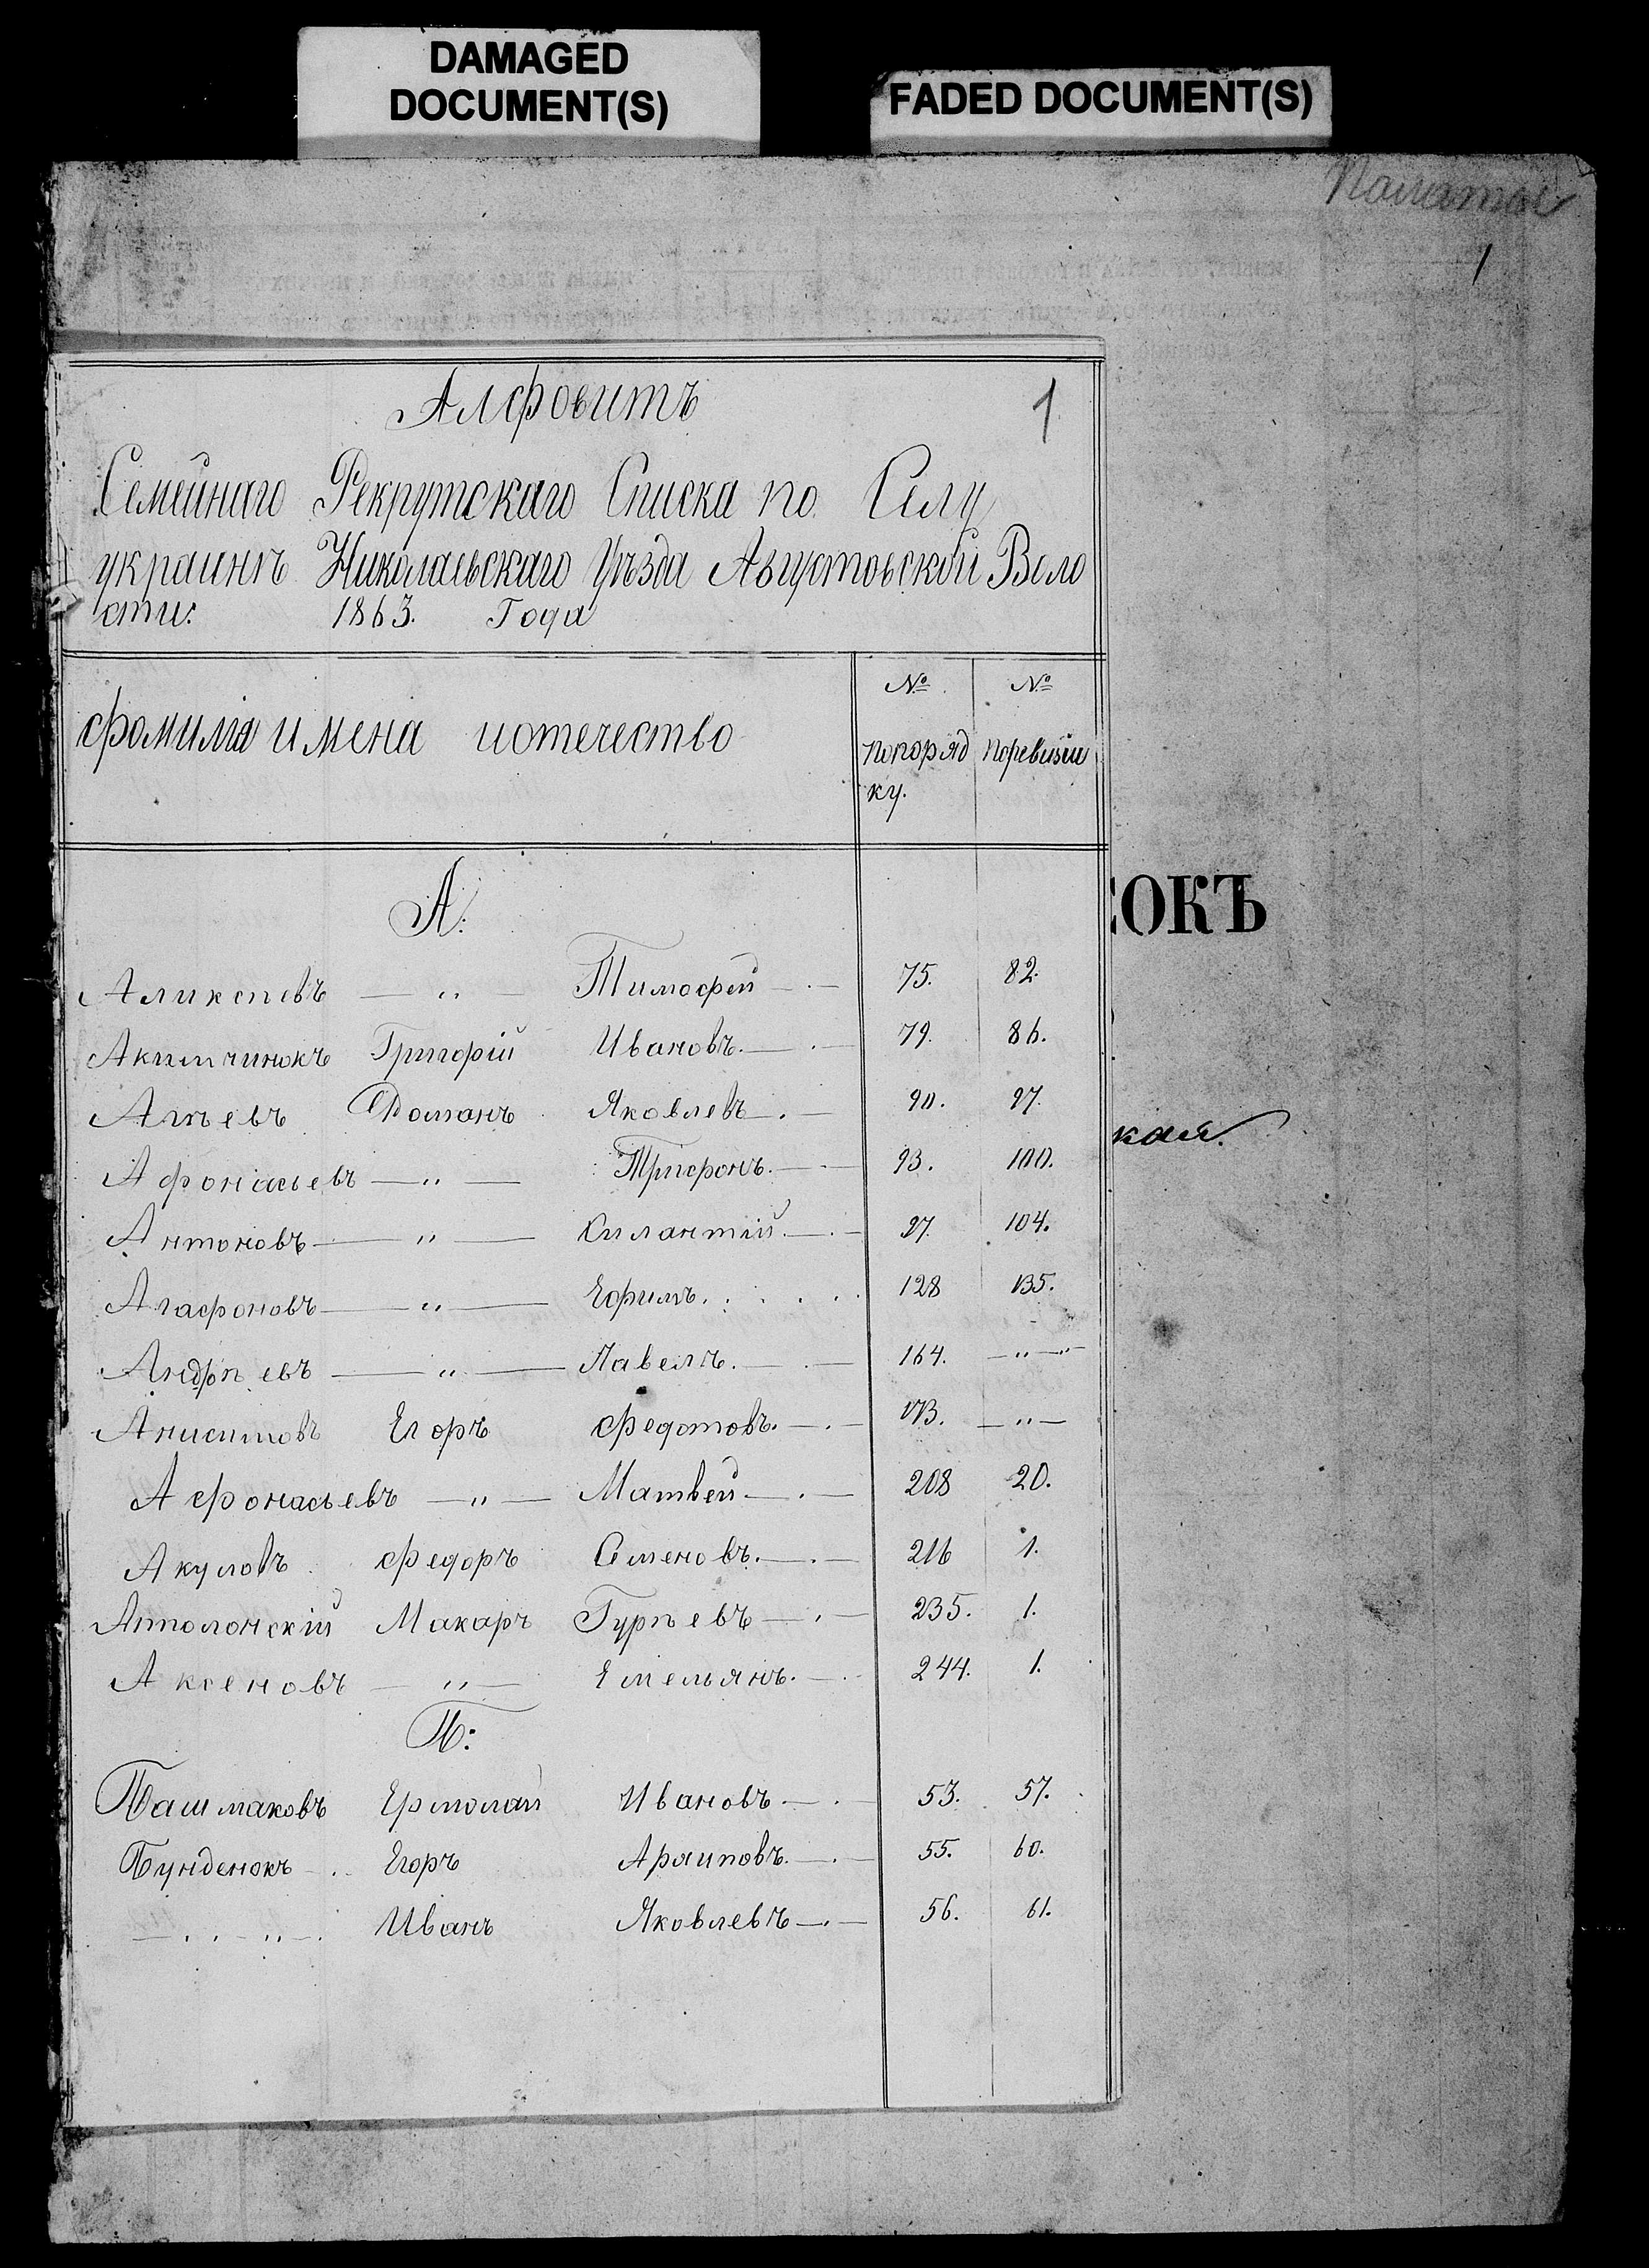 DAMAGED
DOCUMENT(S)
FADED DOCUMENT(S)
1
Алфовитъ
1
Семейнаго Рекрутскаго Списка по Селу
украинѣ Николаевскаго Уѣзда Августовской Воло
сти: 1863. Года
фомилія имена иотечество
№ попоряд ку.
№ поревизіи
СОКЪ
А:
Аликсѣевъ — " — Тимофей — 75. 82.
Акимчинокъ Григорій Ивановъ. — 79. 86.
кая.
Агѣевъ Романъ Яковлевъ. — 90. 97.
Афонасьевъ — " — Трифонъ. — 93. 100.
Антоновъ — " — Силантій. — 97. 104.
Агафоновъ — " — Ефимъ. 128 135.
Андрѣевъ — " — Павелъ. — 164. — " —
Анисимовъ Егоръ Федотовъ. — 173. — " —
Афонасьевъ — " — Матвей — 208 20.
Акуловъ Федоръ Семеновъ. — 216 1.
Аполонскій Макаръ Гурѣевъ — 235. 1.
Аксеновъ — " — Емельянъ. — 244. 1.
Б:
Башмаковъ Ермолай Ивановъ — 53. 57.
Бунденокъ Егоръ Архиповъ. — 55. 60.
— " — Иванъ Яковлевъ — 56. 61.